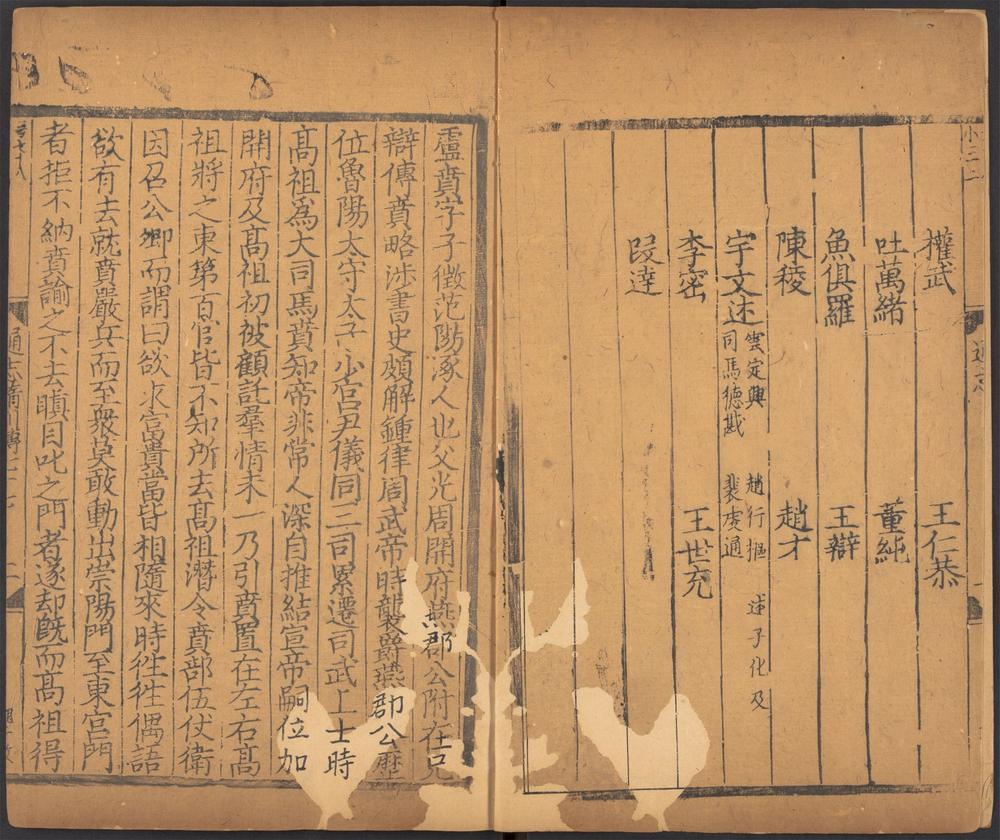 權武 王仁恭
吐萬緒 董純
魚俱羅 王辯
陳稜 趙才
宇文述 雲定興 趙行樞 述子化及 司馬德戡 裴虔通
李密 王世充
段達
盧賁字子徵范陽涿人也父光周開府燕郡公附在兄
辯傳賁略涉書史頗解鍾律周武帝時襲爵燕郡公歷
位魯陽太守太子少宮尹儀同三司累遷司武上士時
高祖爲大司馬賁知帝非常人深自推結宣帝嗣位加
開府及高祖初被顧託羣情未一乃引賁置在左右高
祖將之東第百官皆不知所去高祖潛令賁部伍仗衛
因召公卿而謂曰欲求富貴當皆相隨來時徃徃偶語
欲有去就賁嚴兵而至衆莫敢動出崇陽門至東宮門
者拒不納賁諭之不去瞋目叱之門者遂却旣而高祖得